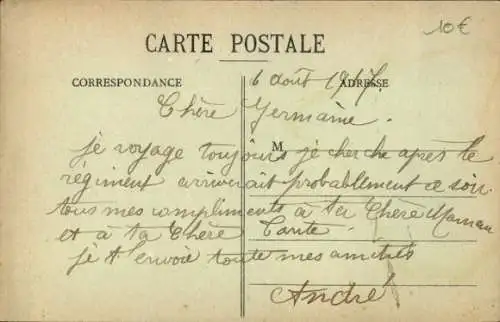 10€
CARTE POSTALE
CORRESPONDANCE
ADRESSE
6 août 1917.
Chère Germaine.
M
je voyage toujours je cherche après le
régiment arriverait probablement ce soir
tous mes compliments à ta Chère Maman
et à ta Chère Tante.
je t'envoie toute mes amitiés
André